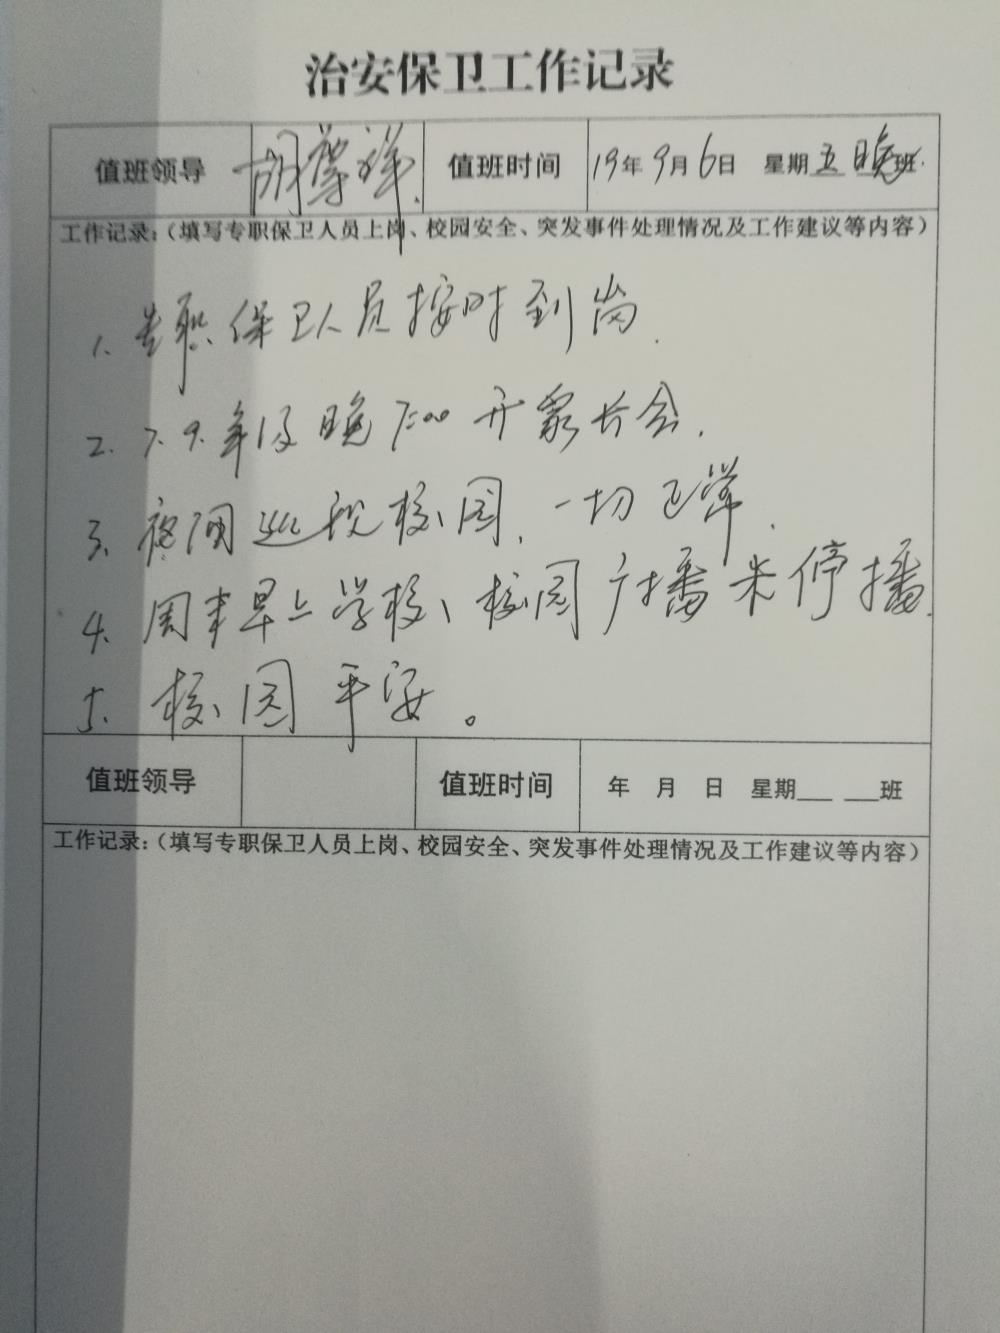 治安保卫工作记录
值班领导 胡尊祥 值班时间 19年9月6日 星期五 晚班
工作记录:(填写专职保卫人员上岗、校园安全、突发事件处理情况及工作建议等内容)
1. 专职保卫人员按时到岗.
2. 7.9.年级晚7:00开家长会.
3. 夜间巡视校园,一切正常.
4. 周末早上学校、校园广播未停播.
5. 校园平安。
值班领导 值班时间 年 月 日 星期___ ___班
工作记录:(填写专职保卫人员上岗、校园安全、突发事件处理情况及工作建议等内容)